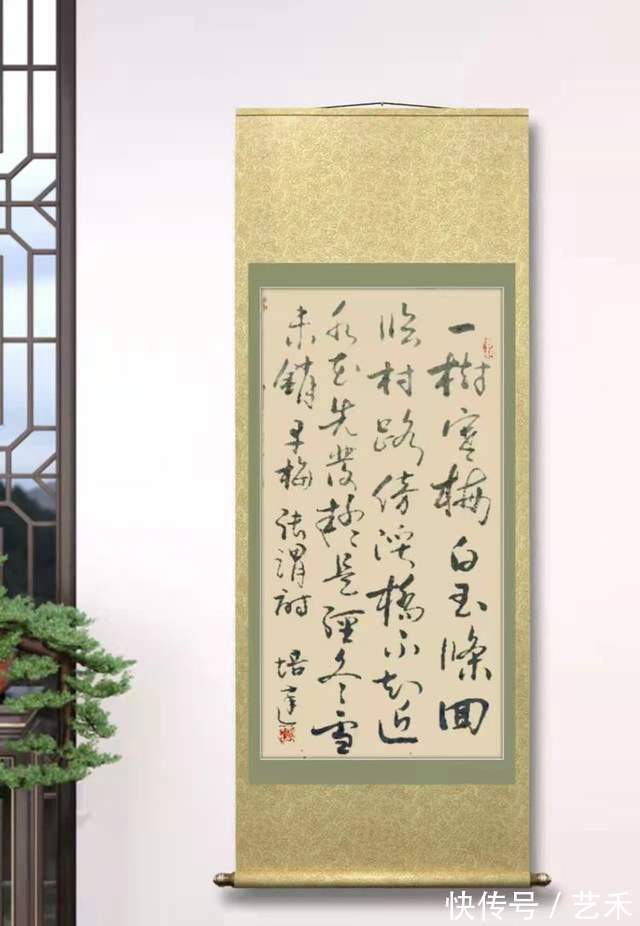 一樹寒梅白玉條回
臨村路傍溪橋不知近
水花先發疑是經冬雪
未銷 早梅 張謂詩 培達
快传号 / 艺禾